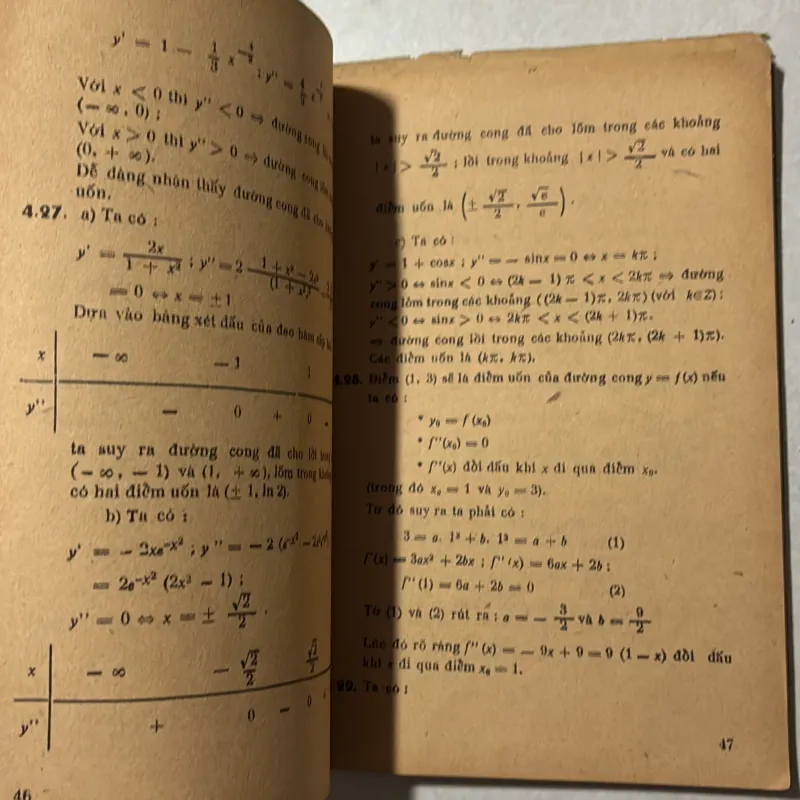 y' = 1 - 1/3 x
Với x < 0 thì y'' < 0 ⇒ đường cong
(- ∞, 0) ;
Với x > 0 thì y'' > 0 ⇒ đường cong
(0, + ∞).
Dễ dàng nhận thấy đường cong đã cho
uốn.
4.27. a) Ta có :
y' = 2x / (1 + x²) ; y'' = 2
= 0 ⇔ x = ± 1
Dựa vào bảng xét dấu của đạo hàm cấp
x - ∞ - 1 1
y'' - 0 + 0
ta suy ra đường cong đã cho lồi trong
(- ∞, - 1) và (1, + ∞), lõm trong
có hai điểm uốn là (± 1, ln2).
b) Ta có :
y' = - 2xe^{-x²} ; y'' = - 2
= 2e^{-x²} (2x² - 1) ;
y'' = 0 ⇔ x = ± √2/2 .
x - ∞ - √2/2 √2/2
y'' + 0 - 0
46
ta suy ra đường cong đã cho lõm trong các khoảng
|x| > √2/2 ; lồi trong khoảng |x| > √2/2 và có hai
điểm uốn là (± √2/2, √e/e) .
c) Ta có :
y' = 1 + cosx ; y'' = - sinx = 0 ⇔ x = kπ ;
y'' > 0 ⇔ sinx < 0 ⇔ (2k - 1) π < x < 2kπ ⇒ đường
cong lõm trong các khoảng ((2k - 1)π, 2kπ) (với k∈Z) ;
y'' < 0 ⇔ sinx > 0 ⇔ 2kπ < x < (2k + 1)π.
⇒ đường cong lồi trong các khoảng (2kπ, (2k + 1)π).
Các điểm uốn là (kπ, kπ).
4.28. Điểm (1, 3) sẽ là điểm uốn của đường cong y = f(x) nếu
ta có :
* y₀ = f(x₀)
* f''(x₀) = 0
* f''(x) đổi dấu khi x đi qua điểm x₀.
(trong đó x₀ = 1 và y₀ = 3).
Từ đó suy ra ta phải có :
3 = a. 1³ + b. 1² = a + b (1)
f'(x) = 3ax² + 2bx ; f''(x) = 6ax + 2b ;
f''(1) = 6a + 2b = 0 (2)
Từ (1) và (2) rút ra : a = - 3/2 và b = 9/2
Lúc đó rõ ràng f''(x) = - 9x + 9 = 9 (1 - x) đổi dấu
khi x đi qua điểm x₀ = 1.
29. Ta có :
47